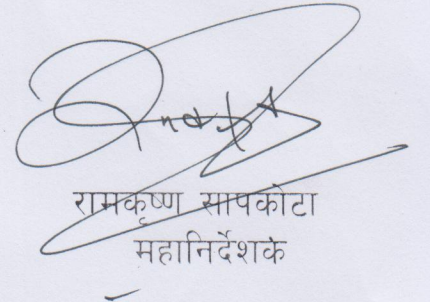 रामकृष्ण सापकोटा
महानिर्देशक